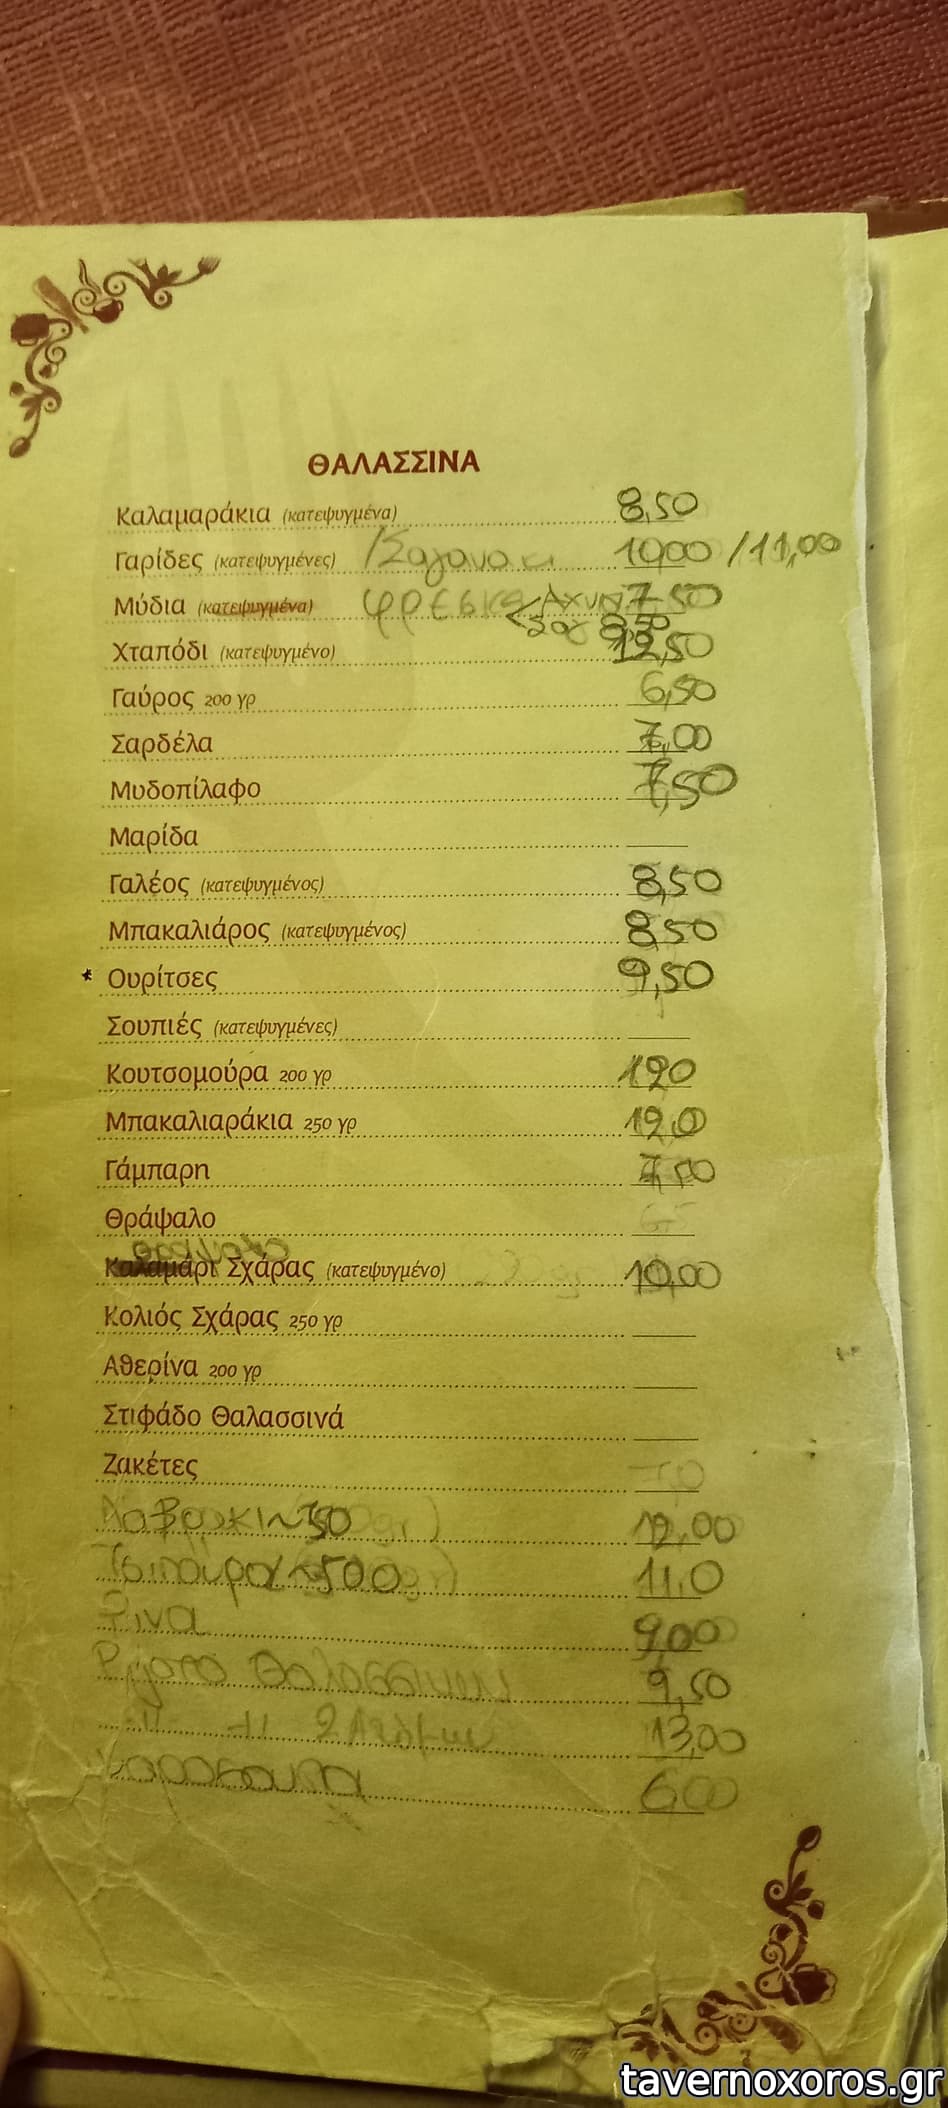 ΘΑΛΑΣΣΙΝΑ
Καλαμαράκια (κατεψυγμένα) 8,50
Γαρίδες (κατεψυγμένες) /Σαγανακι 10,00 /11,00
Μύδια (κατεψυγμένα) φρεσκα Αχνι 7,50
Σαγ 8,50
Χταπόδι (κατεψυγμένο) 12,50
Γαύρος 200 γρ 6,50
Σαρδέλα 7,00
Μυδοπίλαφο 7,50
Μαρίδα
Γαλέος (κατεψυγμένος) 8,50
Μπακαλιάρος (κατεψυγμένος) 8,50
* Ουρίτσες 9,50
Σουπιές (κατεψυγμένες)
Κουτσομούρα 200 γρ
Μπακαλιαράκια 250 γρ 12,0
Γάμπαρη
Θράψαλο
Σχάρας (κατεψυγμένο) 10,00
Κολιός Σχάρας 250 γρ
Αθερίνα 200 γρ
Στιφάδο Θαλασσινά
Ζακέτες
Λαβρακι 12,00
Τσιπουρα ~500 11,0
9,00
Ριζοτο Θαλασσινων 9,50
-11- -11- 2 Ατόμων 13,00
Ψαροσουπα 6,00
tavernoxoros.gr